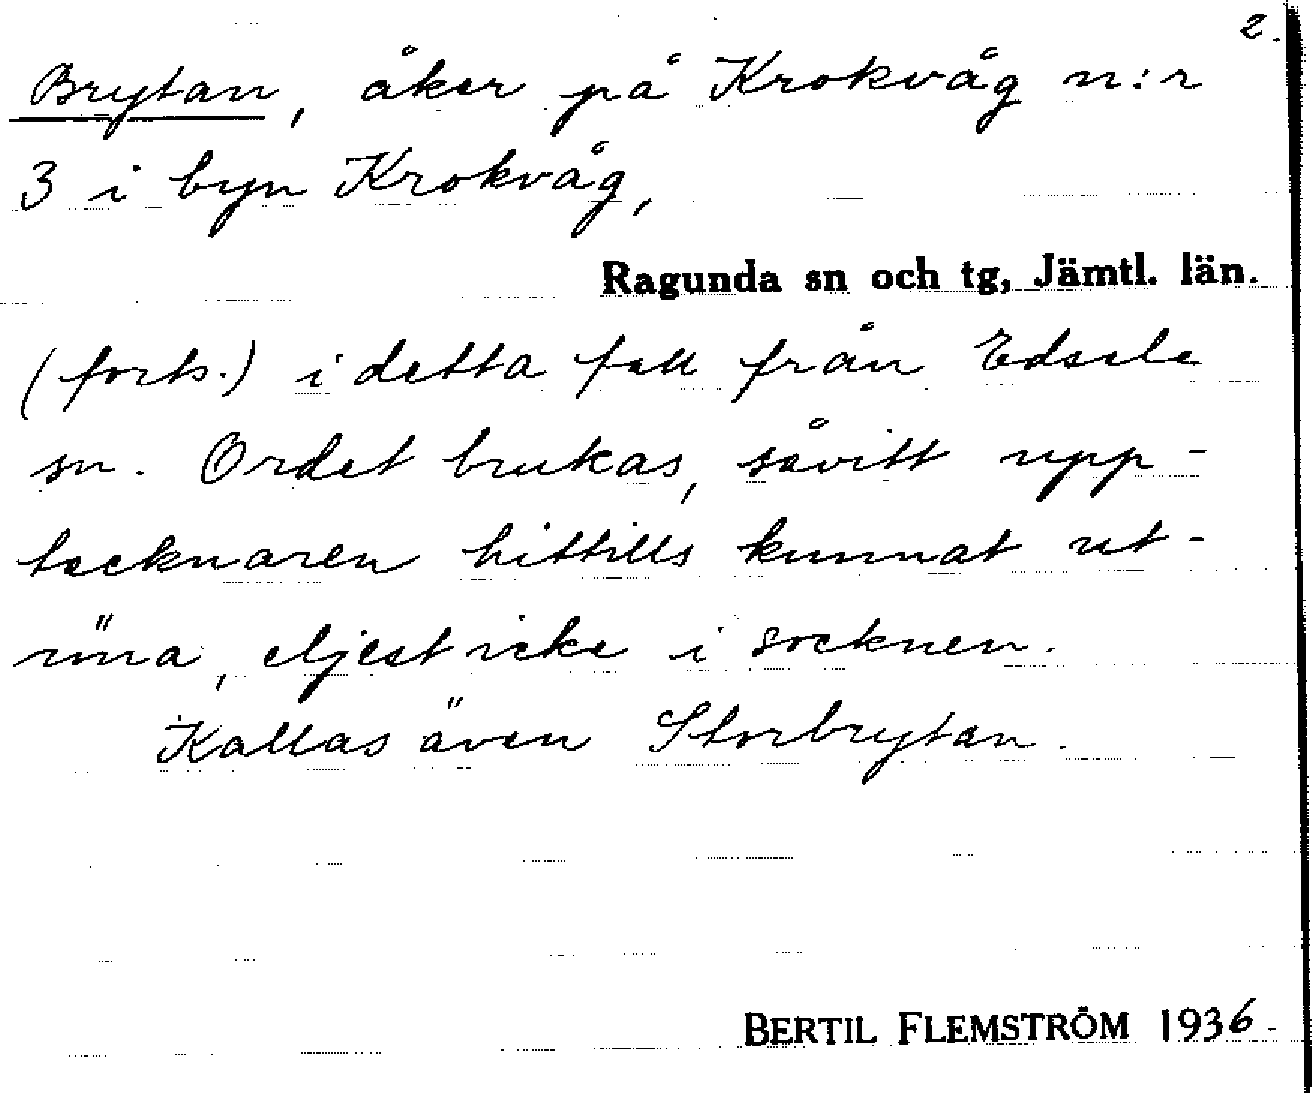 2.
Brytan, åker på Krokvåg n:r
3 i byn Krokvåg,
Ragunda sn och tg, Jämtl. län.
(forts.) i detta fall från Edsele
sn. Ordet brukas, såvitt upp-
tecknaren hittills kunnat ut-
röna, eljest icke i socknen.
Kallas även Storbrytan.
BERTIL FLEMSTRÖM 1936